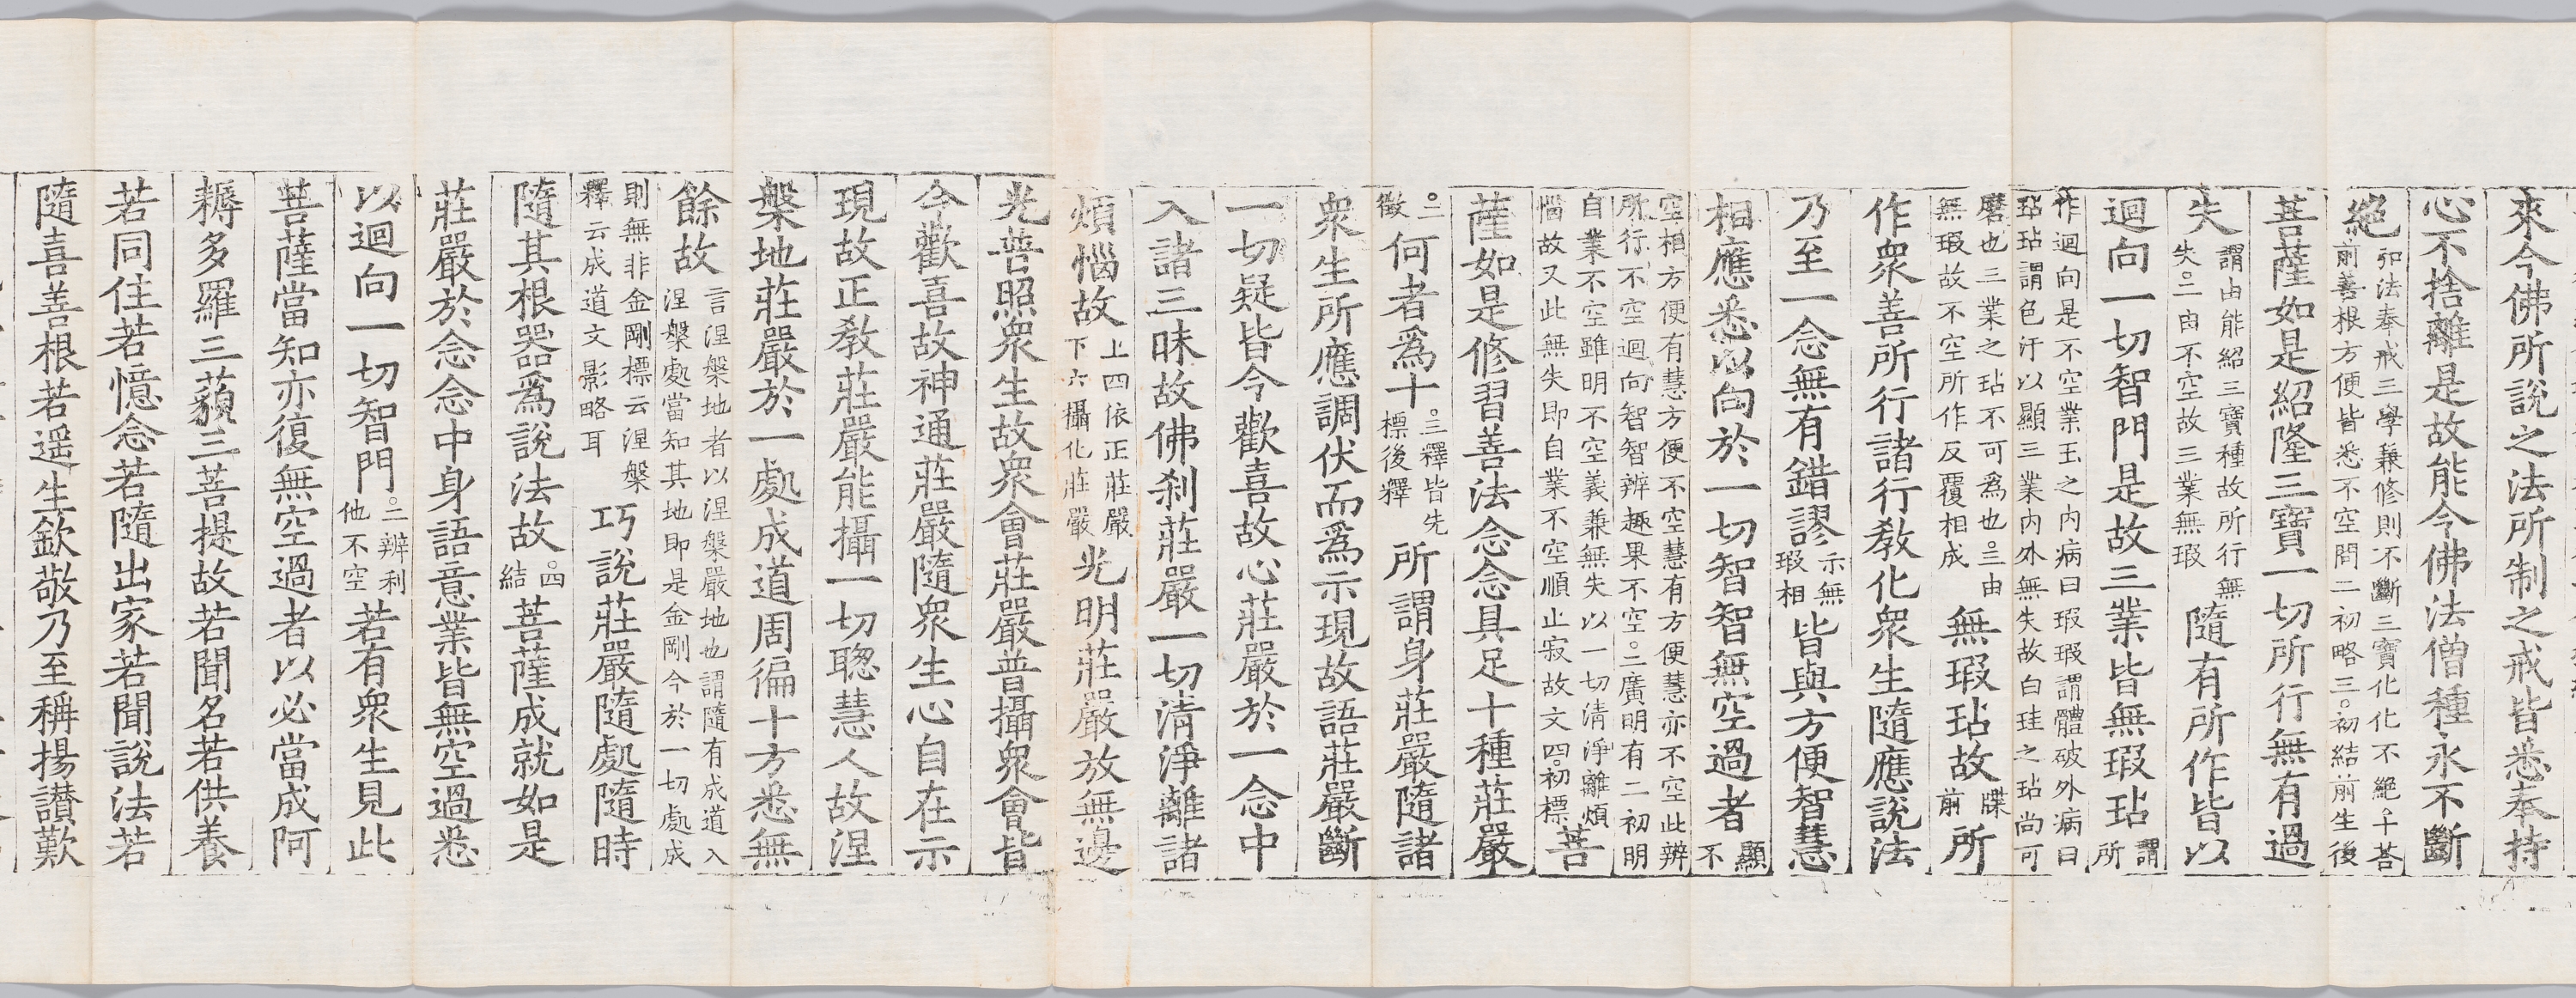 來今佛所說之法所制之戒皆悉奉持
心不捨離是故能令佛法僧種永不斷
絕弘法奉戒三學兼修則不斷三寶化化不絕千荅
前善根方便皆悉不空問二初略三初結前生後
菩薩如是紹隆三寶一切所行無有過
失謂由能紹三寶種故所行無
失二由不空故三業無瑕隨有所作皆以
迴向一切智門是故三業皆無瑕玷謂
所
作迴向是不空業玉之內病曰瑕瑕謂體破外病曰
玷玷謂色汙以顯三業內外無失故白珪之玷尚可
磨也三業之玷不可爲也三由
無瑕故不空所作反覆相成無瑕玷故牒
前所
作衆善所行諸行教化衆生隨應說法
乃至一念無有錯謬示無
瑕相皆與方便智慧
相應悉以向於一切智智無空過者顯
不
空相方便有慧方便不空慧有方便慧亦不空此辨
所行不空迴向智智辨趣果不空二廣明有二初明
自業不空雖明不空義兼無失以一切清淨離煩
惱故又此無失即自業不空順止寂故文四初標菩
薩如是修習善法念念具足十種莊嚴
二
徵何者爲十三釋皆先
標後釋所謂身莊嚴隨諸
衆生所應調伏而爲示現故語莊嚴斷
一切疑皆令歡喜故心莊嚴於一念中
入諸三昧故佛刹莊嚴一切清淨離諸
煩惱故上四依正莊嚴
下六攝化莊嚴光明莊嚴放無邊
光普照衆生故衆會莊嚴普攝衆會皆
令歡喜故神通莊嚴隨衆生心自在示
現故正教莊嚴能攝一切聰慧人故涅
槃地莊嚴於一處成道周徧十方悉無
餘故言涅槃地者以涅槃嚴地也謂隨有成道入
涅槃處當知其地即是金剛今於一切處成
則無非金剛標云涅槃
釋云成道文影略耳巧說莊嚴隨處隨時
隨其根器爲說法故四
結菩薩成就如是
莊嚴於念念中身語意業皆無空過悉
以迴向一切智門二辨利
他不空若有衆生見此
菩薩當知亦復無空過者以必當成阿
耨多羅三藐三菩提故若聞名若供養
若同住若憶念若隨出家若聞說法若
隨喜善根若遥生欽敬乃至稱揚讃歎